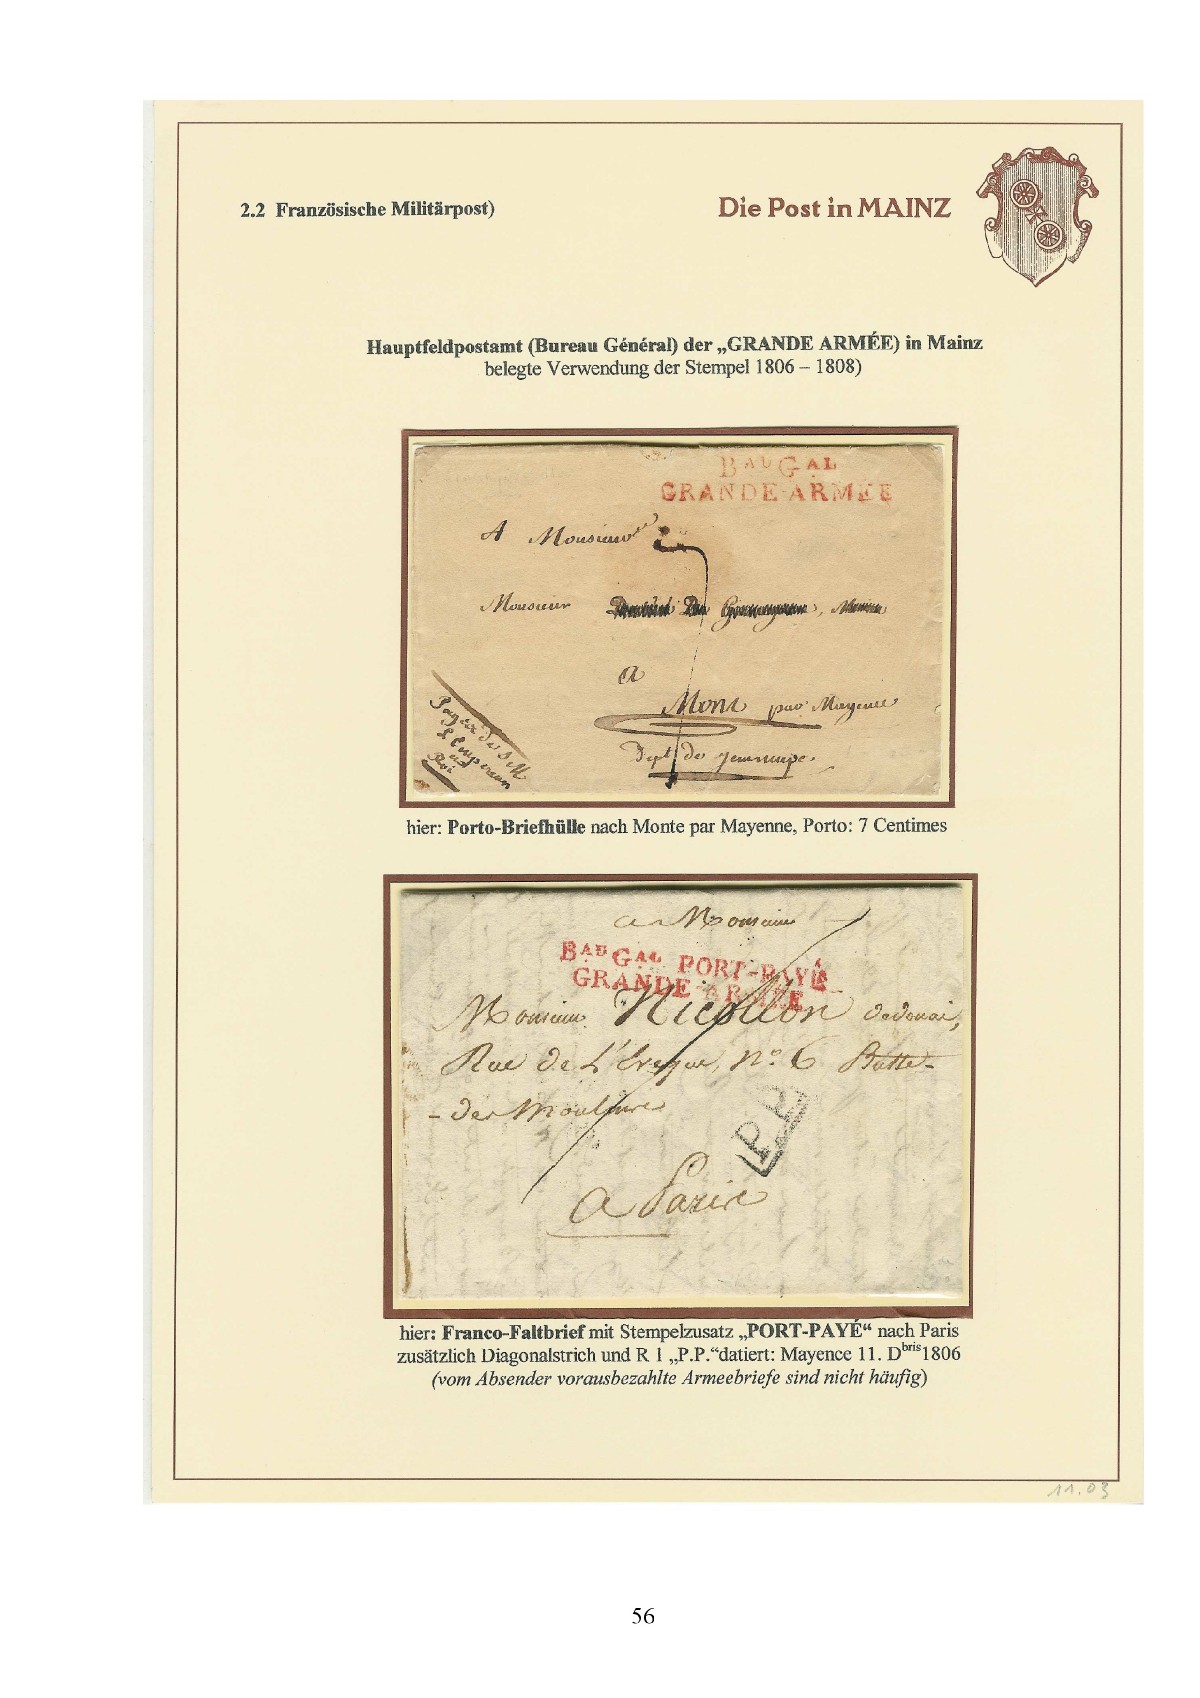 2.2 Französische Militärpost)
Die Post in MAINZ
Hauptfeldpostamt (Bureau Général) der „GRANDE ARMÉE) in Mainz
belegte Verwendung der Stempel 1806 – 1808)
BAU GAL
GRANDE-ARMÉE
A Monsieur
Monsieur
a
Mons par Mayence
Dept de Jemmape
hier: Porto-Briefhülle nach Monte par Mayenne, Porto: 7 Centimes
a Monsieur
BAU GAL PORT-PAYÉ
GRANDE-ARMÉE
Monsieur Nicollon
Rue de L'Eveque, No 6 Butte-
- des Moulins
P.P.
a Paris
hier: Franco-Faltbrief mit Stempelzusatz „PORT-PAYÉ“ nach Paris
zusätzlich Diagonalstrich und R 1 „P.P.“datiert: Mayence 11. Dbris1806
(vom Absender vorausbezahlte Armeebriefe sind nicht häufig)
11.03
56